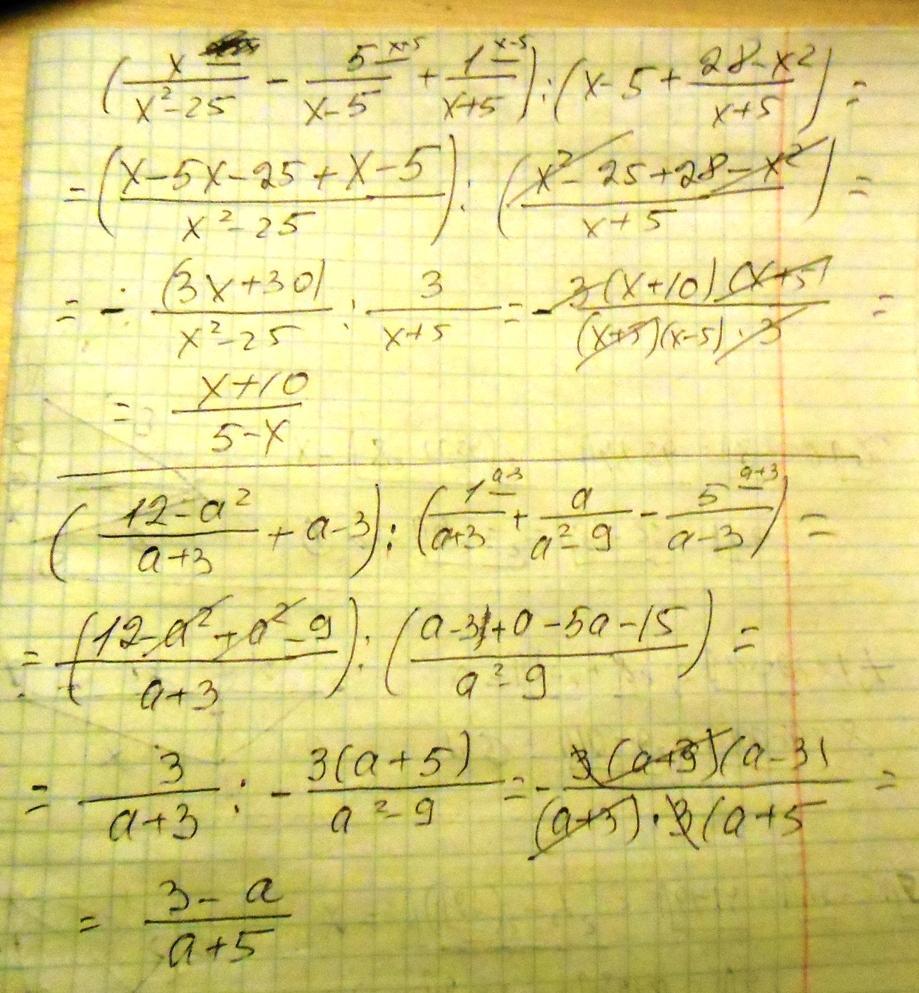 (x/(x²-25) - 5^(x+5)/(x-5) + 1^(x-5)/(x+5)) : (x-5+(28-x²)/(x+5)) =
= ((x-5x-25+x-5)/(x²-25)) : ((x²-25+28-x²)/(x+5)) =
= -(3x+30)/(x²-25) : 3/(x+5) = -3(x+10)(x+5)/((x+5)(x-5)·3) =
= (x+10)/(5-x)
((12-a²)/(a+3) + a-3) : (1^(a-3)/(a+3) + a/(a²-9) - 5^(a+3)/(a-3)) =
= ((12-a²+a²-9)/(a+3)) : ((a-3+a-5a-15)/(a²-9)) =
= 3/(a+3) : -3(a+5)/(a²-9) = -3(a+3)(a-3)/((a+3)·3(a+5) =
= (3-a)/(a+5)